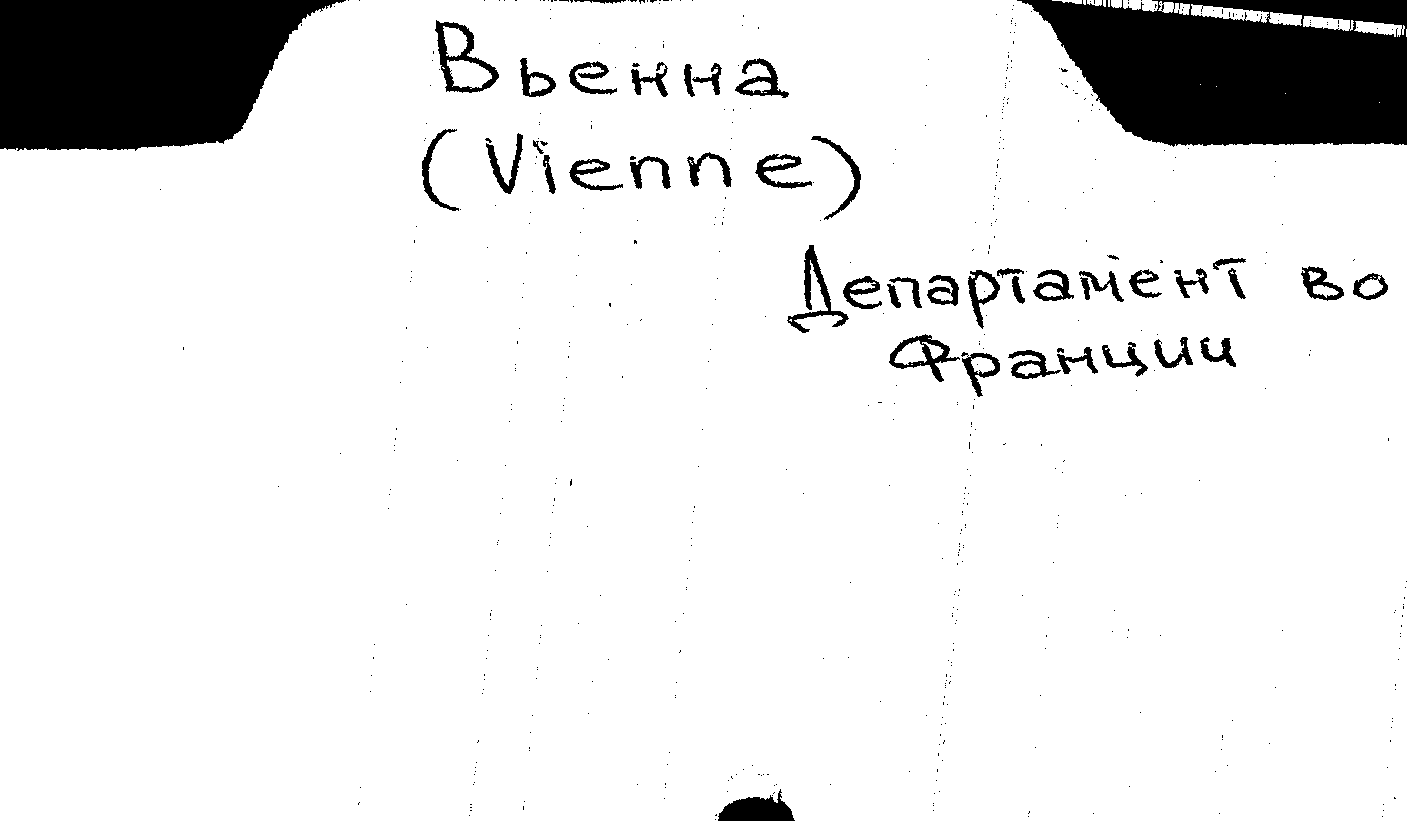 Вьенна
(Vienne)
Департамент во
Франции